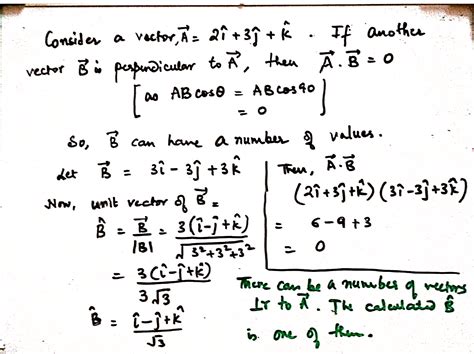 Consider a vector, A⃗ = 2î + 3ĵ + k̂ . If another
vector B⃗ is perpendicular to A⃗, then A⃗ . B⃗ = 0
[ as AB cosθ = AB cos 90
= 0 ]
So, B⃗ can have a number of values.
Let B⃗ = 3î - 3ĵ + 3k̂
Now, unit vector of B⃗ =
B̂ = B⃗/|B| = 3(î-ĵ+k̂)/√(3²+3²+3²)
= 3(î-ĵ+k̂)/3√3
B̂ = î-ĵ+k̂/√3
Then, A⃗ . B⃗
(2î+3ĵ+k̂)(3î-3ĵ+3k̂)
= 6-9+3
= 0
There can be a number of vectors
⊥r to A⃗. The calculated B̂
is one of them.